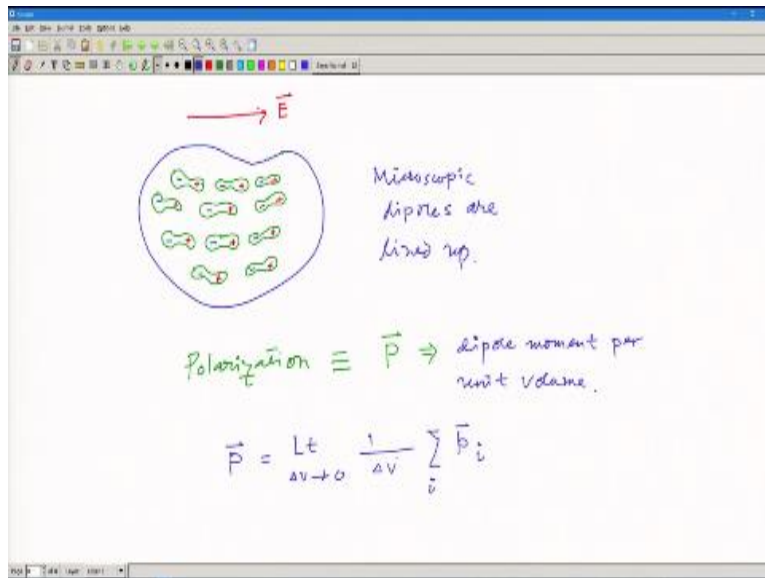 E⃗
Microscopic
dipoles are
lined up.
Polarization ≡ P⃗ ⇒ dipole moment per
unit volume.
P⃗ = Lt 1/ΔV ∑ p⃗ i
ΔV→0 i